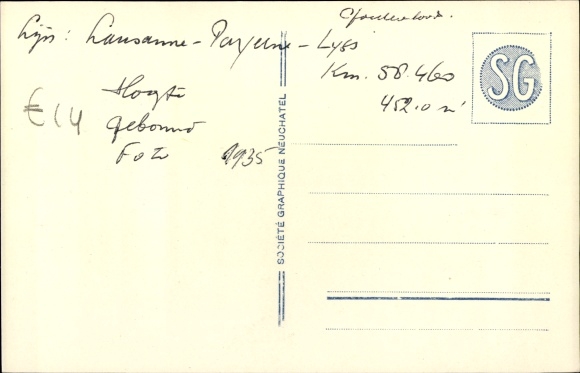 Lijn: Lausanne - Payerne - Lyss
Km. 58.460
452.0 m
Hoogte
gebouwd
Foto 1935
€14
SG
SOCIÉTÉ GRAPHIQUE NEUCHATEL